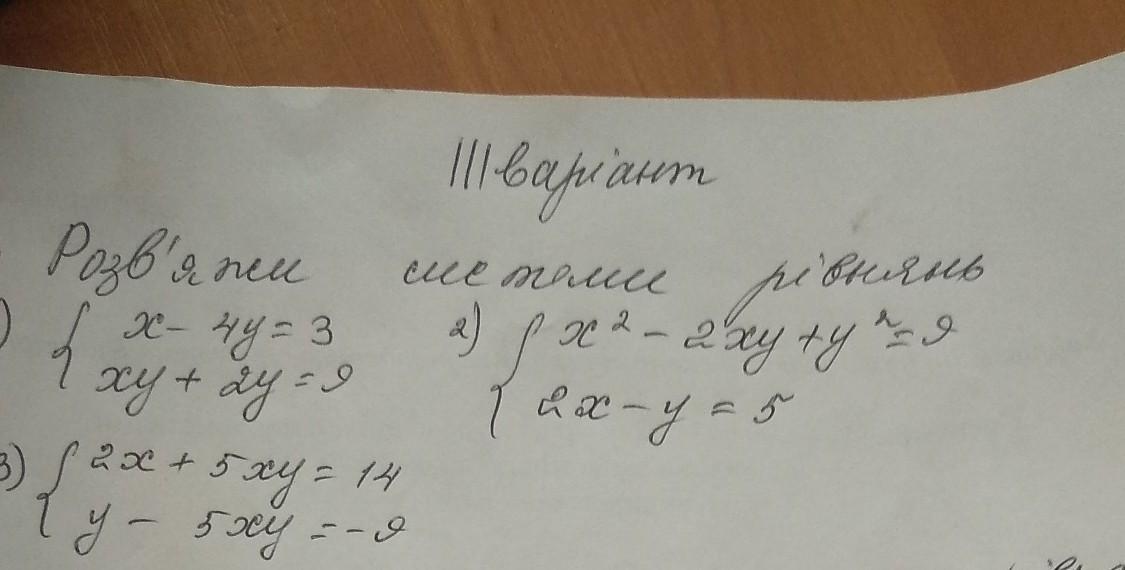 III варіант
Розв'яжи системи рівнянь
) { x - 4y = 3
xy + 2y = 9
2) { x² - 2xy + y² = 9
2x - y = 5
3) { 2x + 5xy = 14
y - 5xy = -9